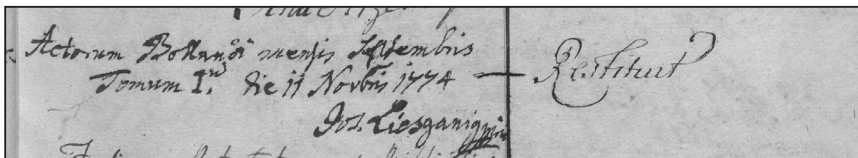 Actorum Bollandi mensis Septembris
Tomum I.um die 11 Novbris 1774 — Restituit
Jos. Liesganig